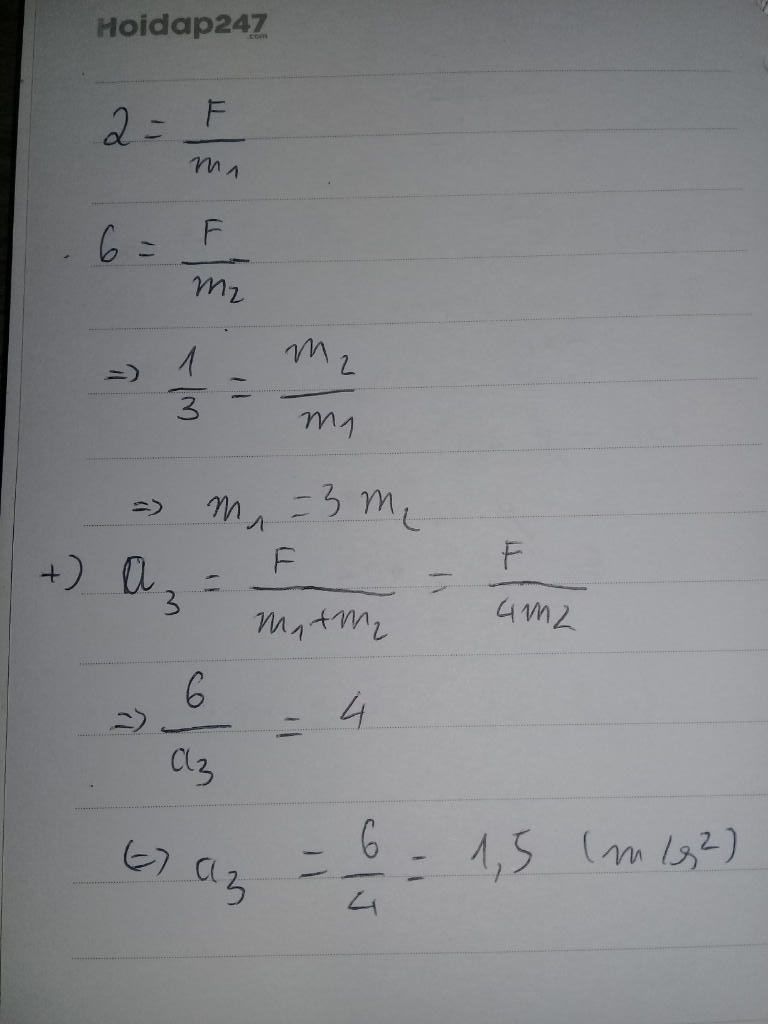 Hoidap247
.com
2 = F/m₁
6 = F/m₂
=> 1/3 = m₂/m₁
=> m₁ = 3 m₂
+) a₃ = F/(m₁+m₂) = F/(4m₂)
=> 6/a₃ = 4
<=> a₃ = 6/4 = 1,5 (m/s²)